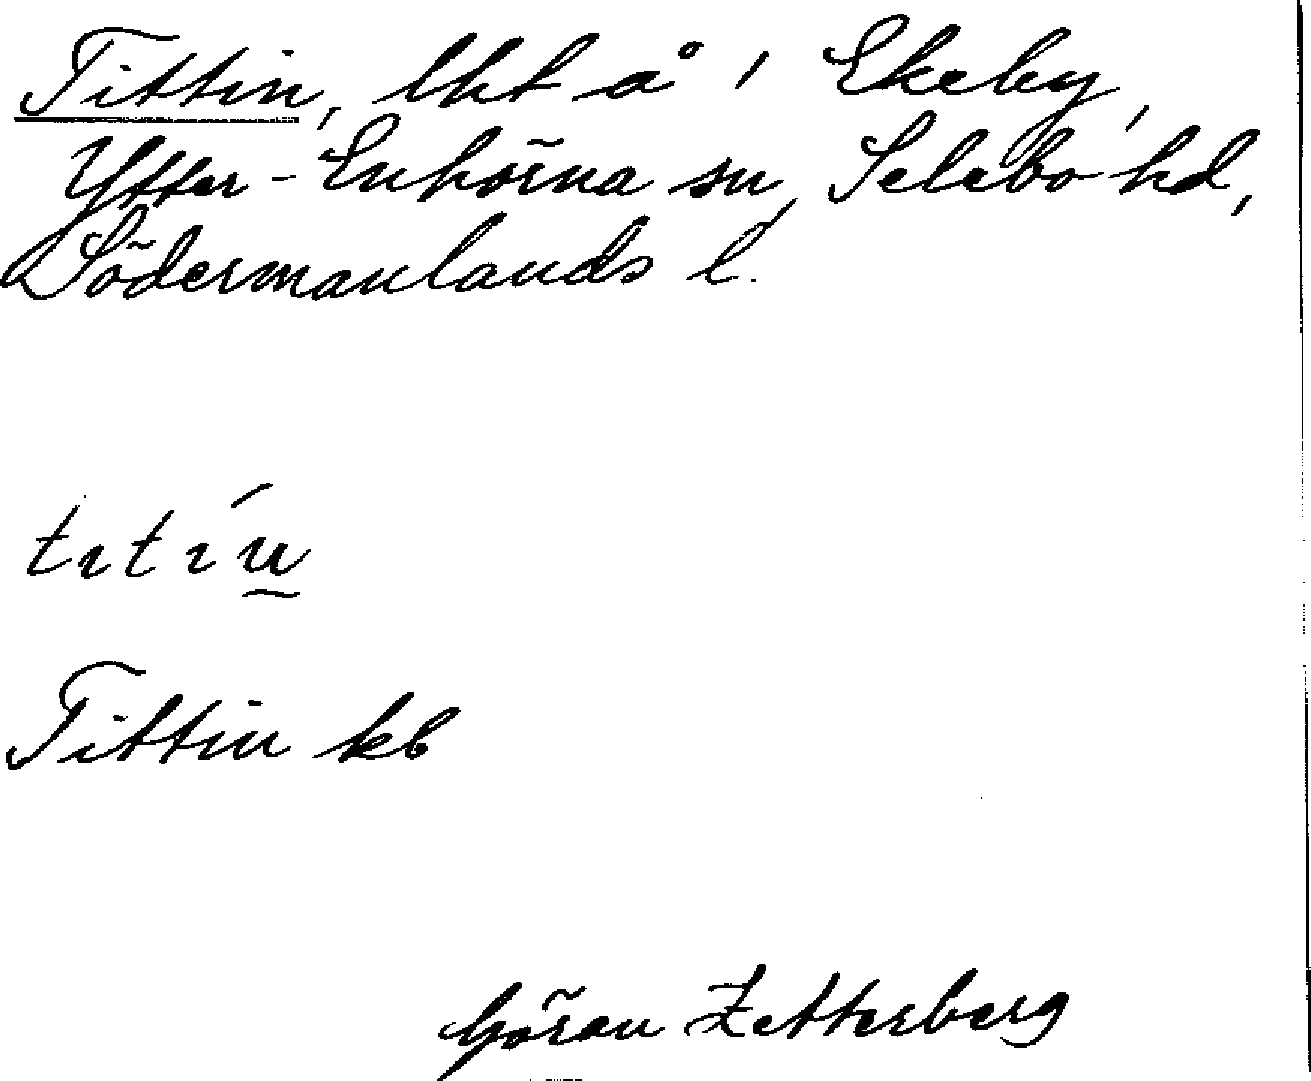 Tittin, lht å i Ekeby,
Ytter-Enhörna sn, Selebo hd,
Södermanlands l.
Tittin kb
Göran Zetterberg